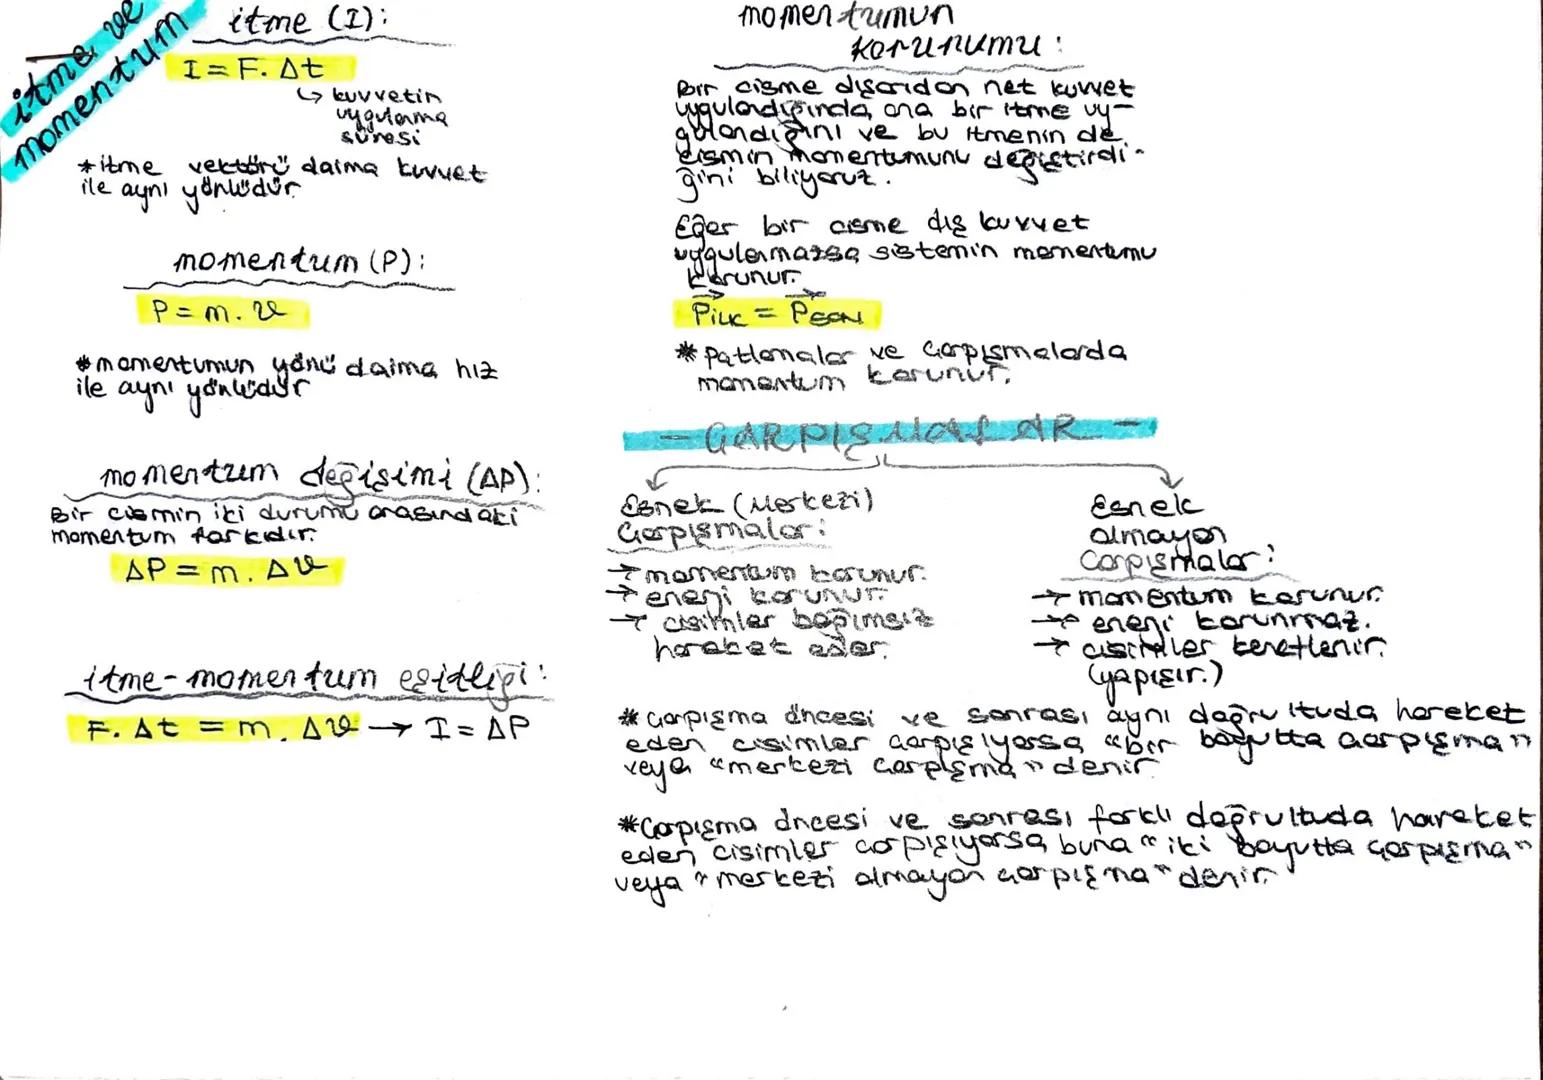 itme ve
momentum
itme (I):
I = F. Δt
↳ kuvvetin
uygulanma
süresi
*itme vektörü daima kuvvet
ile aynı yönlüdür
momentum (P):
P = m. v
*momentumun yönü daima hız
ile aynı yönlüdür
momentum değişimi (ΔP):
Bir cismin iki durumu arasındaki
momentum farkıdır.
ΔP = m. Δv
itme-momentum eşitliği:
F. Δt = m. Δv → I = ΔP
momentumun
korunumu:
Bir cisme dışarıdan net kuvvet
uygulandığında, ona bir itme uy-
gulandığını ve bu itmenin de
cismin momentumunu değiştirdi-
ğini biliyoruz.
Eğer bir cisme dış kuvvet
uygulanmazsa sistemin momentumu
korunur.
PİLK = PSON
* patlamalar ve çarpışmalarda
momentum korunur.
- ÇARPIŞMALAR -
Esnek (Merkezi)
Çarpışmalar:
→ momentum korunur.
→ enerji korunur.
→ cisimler bağımsız
hareket eder.
Esnek
olmayan
Çarpışmalar:
→ momentum korunur.
→ enerji korunmaz.
→ cisimler kenetlenir.
(yapışır.)
* Çarpışma öncesi ve sonrası aynı doğrultuda hareket
eden cisimler çarpışıyorsa "bir boyutta çarpışma"
veya "merkezi çarpışma" denir.
*Çarpışma öncesi ve sonrası farklı doğrultuda hareket
eden cisimler çarpışıyorsa buna "iki boyutta çarpışma"
veya "merkezi olmayan çarpışma" denir.